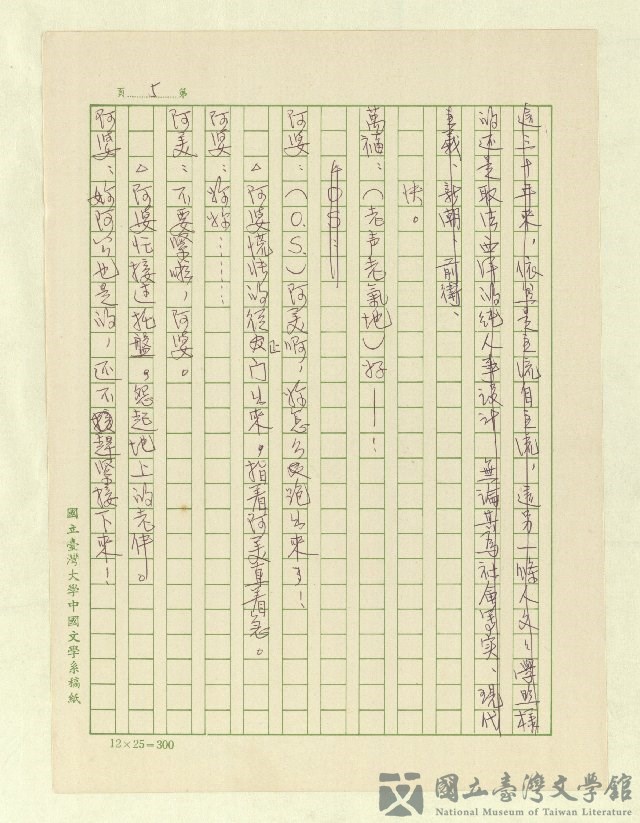 第 5 頁
這三十年來，依舊是主流自主流，這另一條人文文學照樣
的还是取法西洋的純人事設計 無論其為社會写实、現代
主義、新潮、前衛、
快。
萬福：（老声老氣地）好——！
O S：
阿婆：（O.S.）阿美啊，妳怎么又跑出來了！
△ 阿婆慌怯的從正門出來。指着阿美直着急。
阿婆：妳妳…………
阿美：不要緊啦，阿婆。
△ 阿婆忙接过托盤。怨起地上的老伴。
阿婆：妳阿公也是的，还不趕緊接下來！
國立臺灣大學中國文學系稿紙
12×25=300
國立臺灣文學館
National Museum of Taiwan Literature